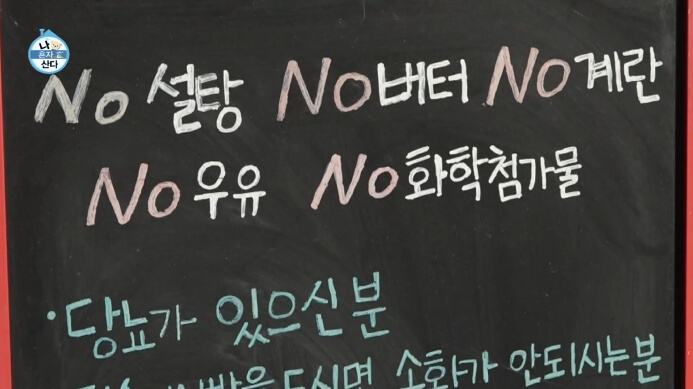 나 혼자 산다
No 설탕 No 버터 No 계란
No 우유 No 화학첨가물
· 당뇨가 있으신 분
드시면 소화가 안되시는분